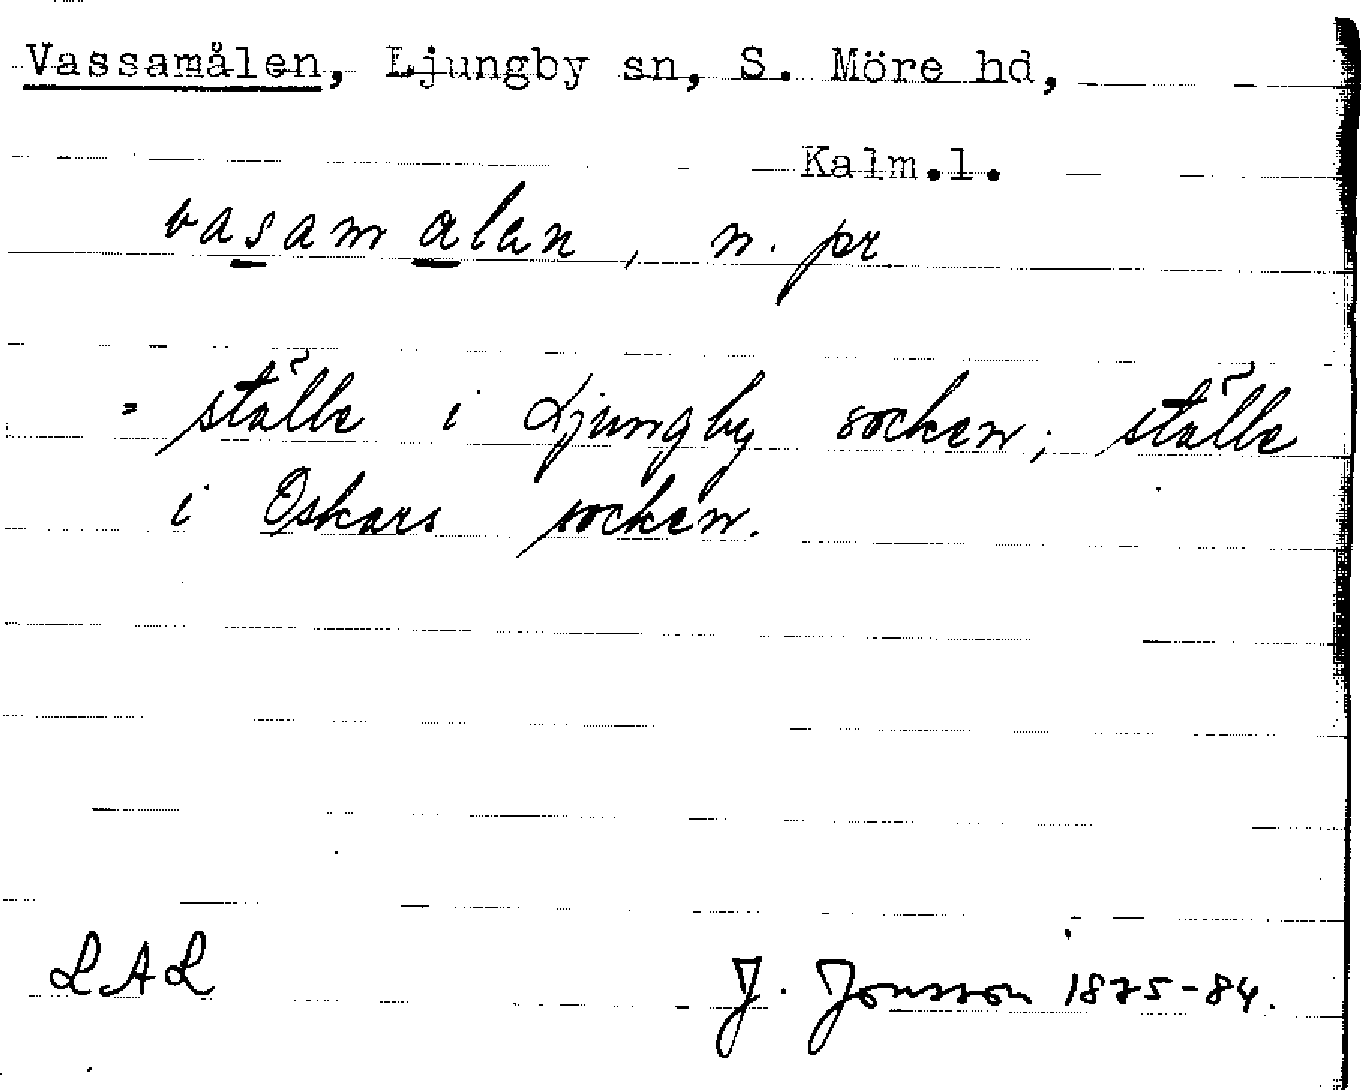 Vassamålen, Ljungby sn, S. Möre hd,
Kalm.l.
vasamalan, n. pr
= ställe i Ljungby socken; ställe
i Oskars socken.
LAL
J. Jonsson 1875-84.